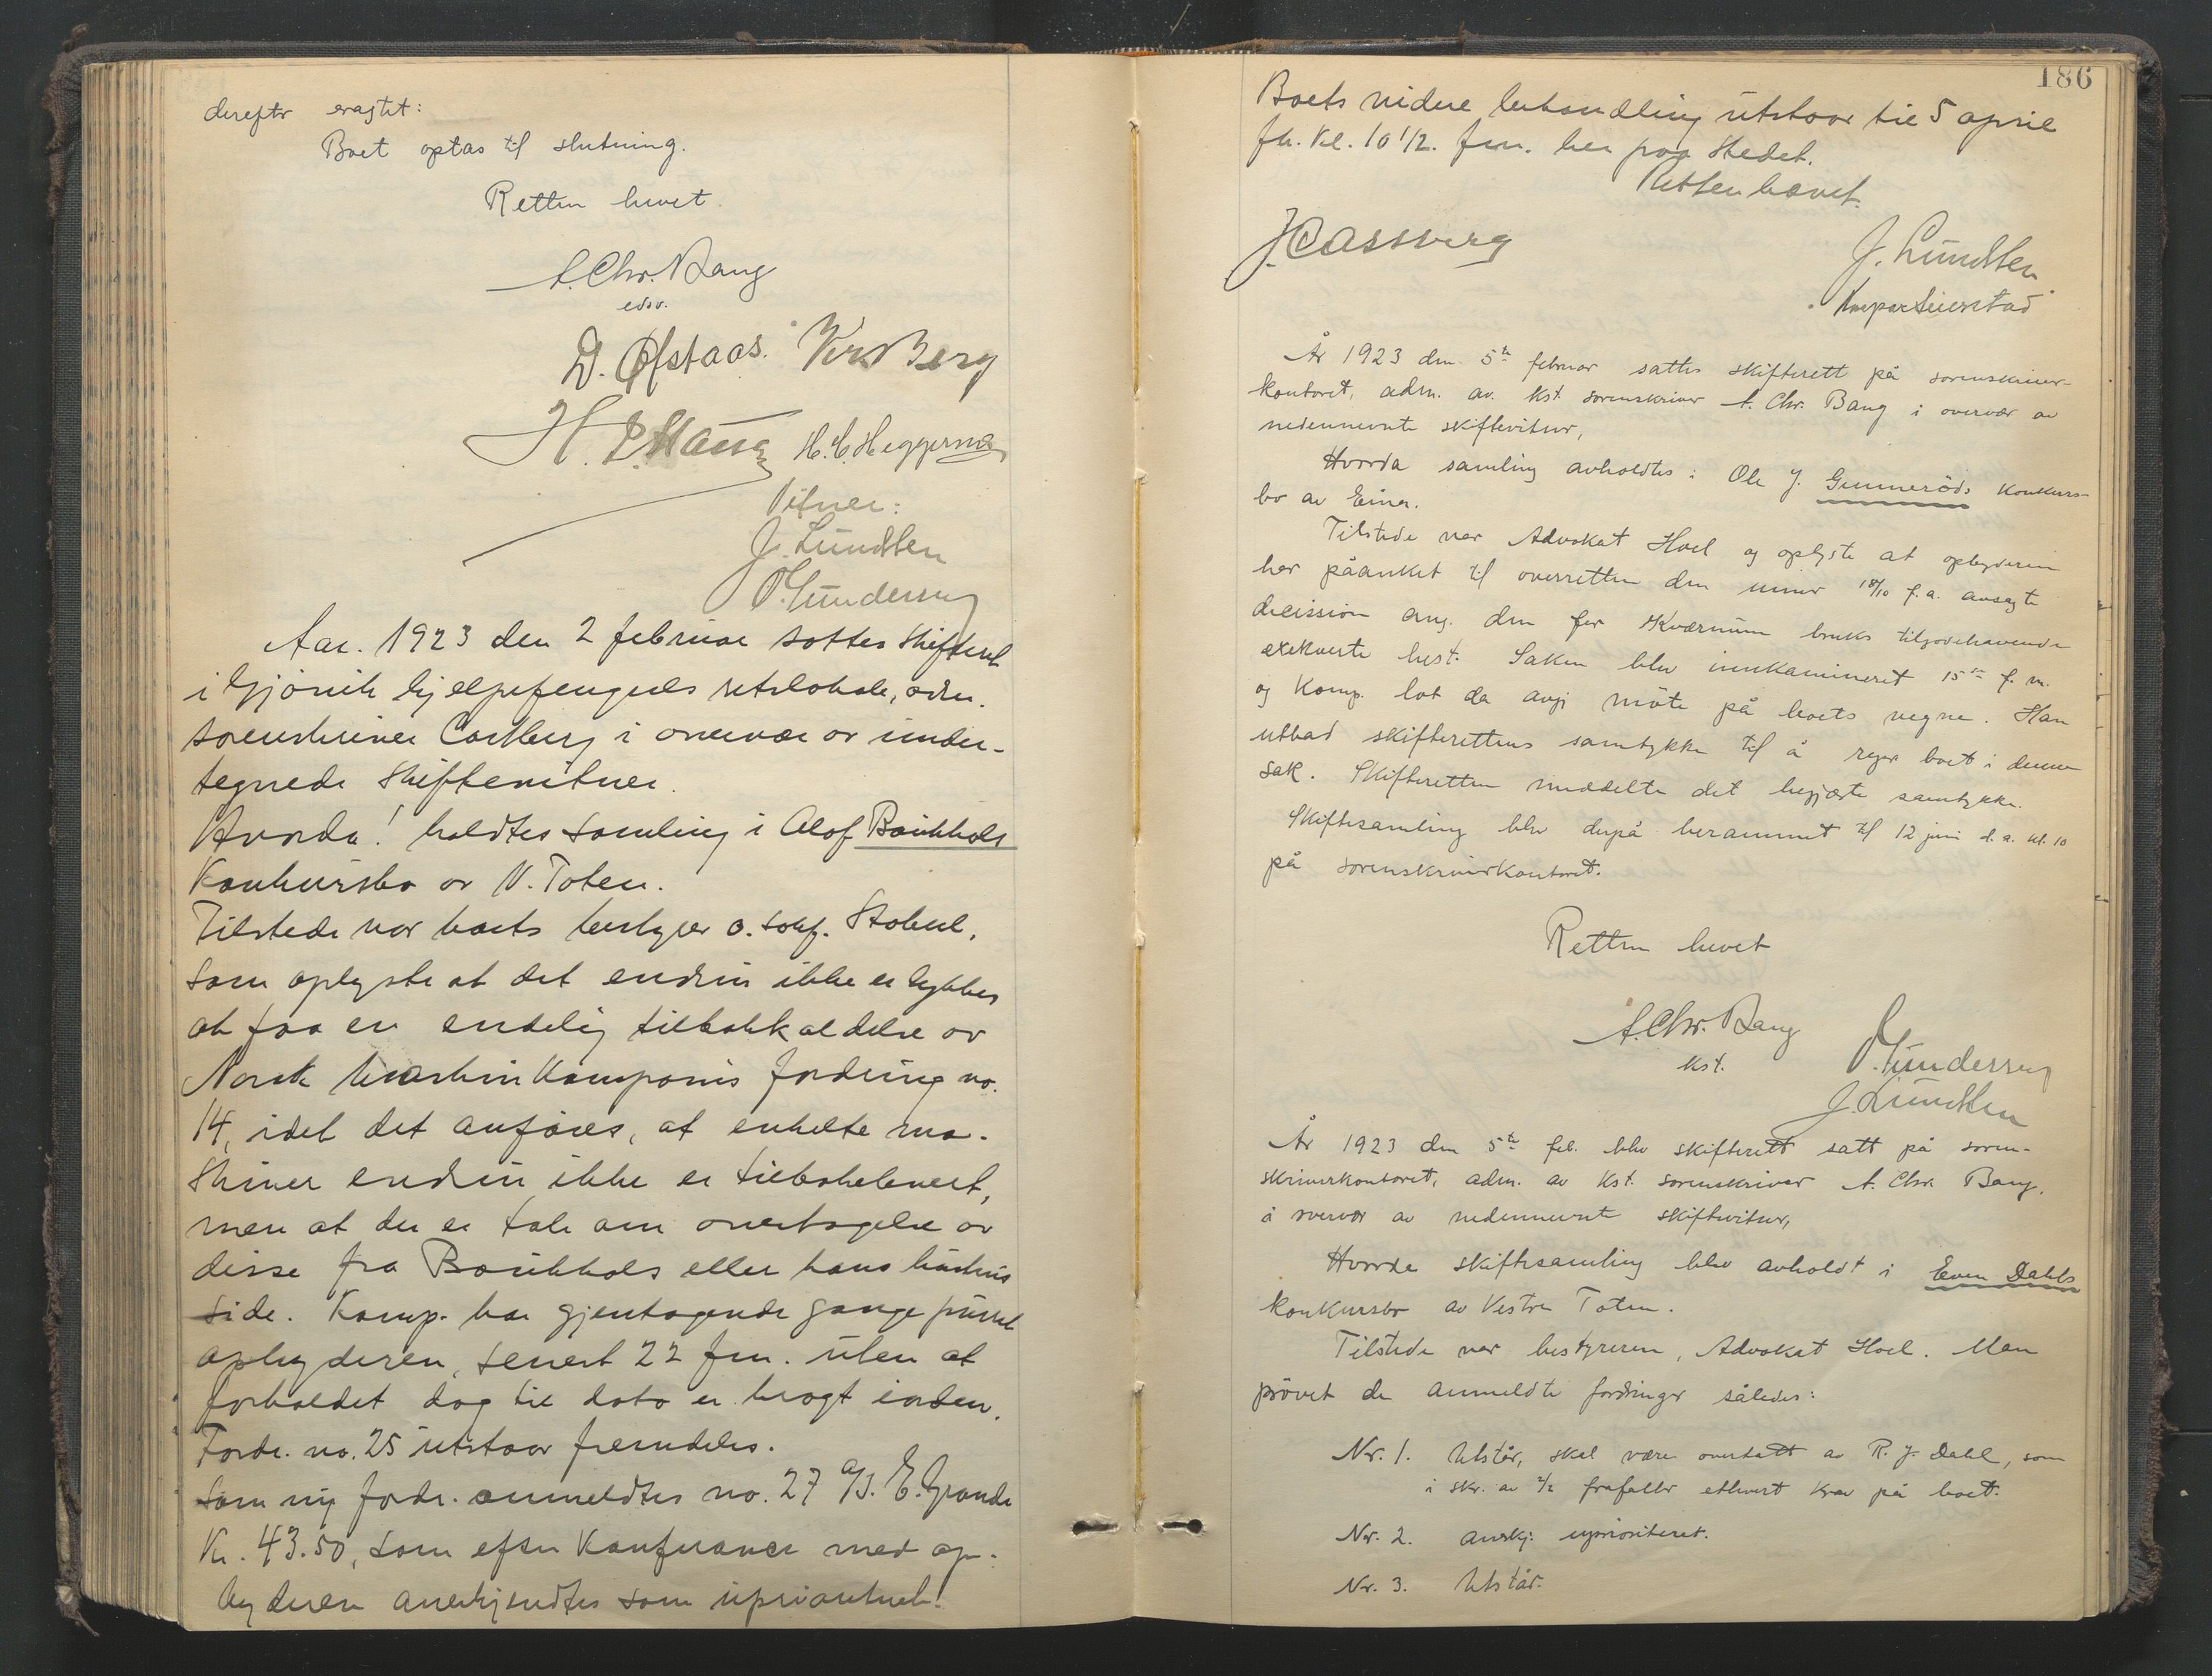 dereftr avsagt:
Boet optas til slutning.
Retten hevet.
A. Chr. Bang
edsv.
D. Øfstaas. Berg
H.
Vitner:
J. Lundsten
O. Gundersen
Aar. 1923 den 2 februar sattes skifteret
i Gjøvik hjelpefengsels retslokale, adm.
sorenskriver Carlberg i overvær av under-
tegnede skiftevitner.
Hvorda! holdtes samling i Olof Bankhols
Konkursbo av V. Toten.
Tilstede var boets bestyrer o. sakf. Stabel,
som oplyste at det endnu ikke er lykkes
at faa en endelig tilbakkaldelse av
Norsk Maskin Kompanis fordring no.
14, idet det anføres, at enkelte ma-
skiner endnu ikke er tilbakelevert,
men at der er tale om overtagelse av
disse fra Bankhols eller hans hustrus
side. Komp. har gjentagende gange purret
opbyderen, senest 22 fm. uten at
forholdet dog til dato er bragt i orden.
Fordr. no. 25 utstaar fremdeles.
Som ny fordr. anmeldtes no. 27 a/s. E. Grande
Kr. 43.50, som efter Konferance med op-
byderen anerkjendtes som uprioritert.
186
Boets videre behandling utstaar til 5 april
fh. Kl. 10 1/2. fm. her paa stedet.
Retten hævet.
J. Lundsten
År 1923 den 5te februar sattes skifterett på sorenskriver-
kontoret, adm. av kst. sorenskriver A. Chr. Bang i overvær av
nedennevnte skiftevitner,
Hvorda samling avholdtes i Ole J. Gunnerøds konkurs-
bo av Eina.
Tilstede var Advokat Hoel og oplyste at opbyderen
har påanket til overretten den under 18/10 f.a. avsagte
decission ang. den for Kværnum bruks tilgodehavende
exekverte hest. Saken blev innkamineret 15de f. m.
og Komp. lot da avgi møte på boets vegne. Han
utbad skifterettens samtykke til å repr boet i denne
sak. Skifteretten meddelte det begjærte samtykke.
Skiftesamling blev derpå berammet til 12 juni d. a. kl. 10
på sorenskriverkontoret.
Retten hevet
A. Chr. Bang
kst.
O. Gundersen
J. Lundsten
År 1923 den 5te feb. blev skifterett satt på soren-
skriverkontoret, adm. av kst. sorenskriver A. Chr. Bang,
i overvær av nedennevnte skiftevitner,
Hvorda skiftesamling blev avholdt i Even Dahls
konkursbo av Vestre Toten.
Tilstede var bestyreren, Advokat Hoel. Man
prøvet de anmeldte fordringer således:
Nr. 1. Utstår, skal være overtatt av R. J. Dahl, som
i skr. av 2/2 frafaller ethvert krav på boet.
Nr. 2. anerkj. uprioriteret.
Nr. 3. Utstår.